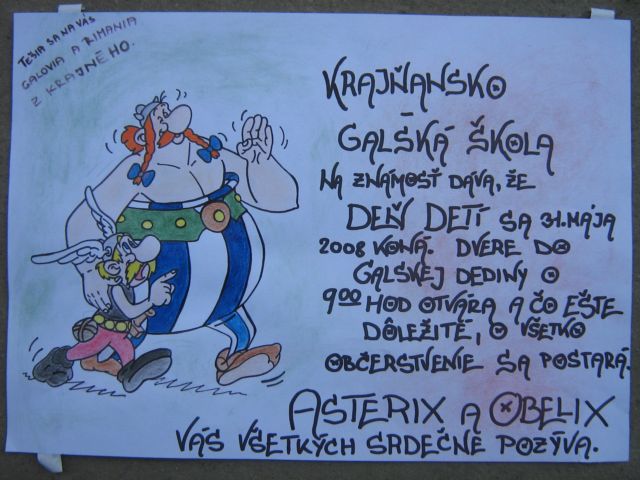 TEŠIA SA NA VÁS
GALOVIA A RIMANIA
Z KRAJNÉHO.
KRAJŇANSKO
GALSKÁ ŠKOLA
NA ZNÁMOSŤ DÁVA, ŽE
DEŇ DETÍ SA 31. MÁJA
2008 KONÁ. DVERE DO
GALSKEJ DEDINY O
9⁰⁰ HOD OTVÁRA A ČO EŠTE
DÔLEŽITÉ, O VŠETKO
OBČERSTVENIE SA POSTARÁ.
ASTERIX A OBELIX
VÁS VŠETKÝCH SRDEČNE POZÝVA.